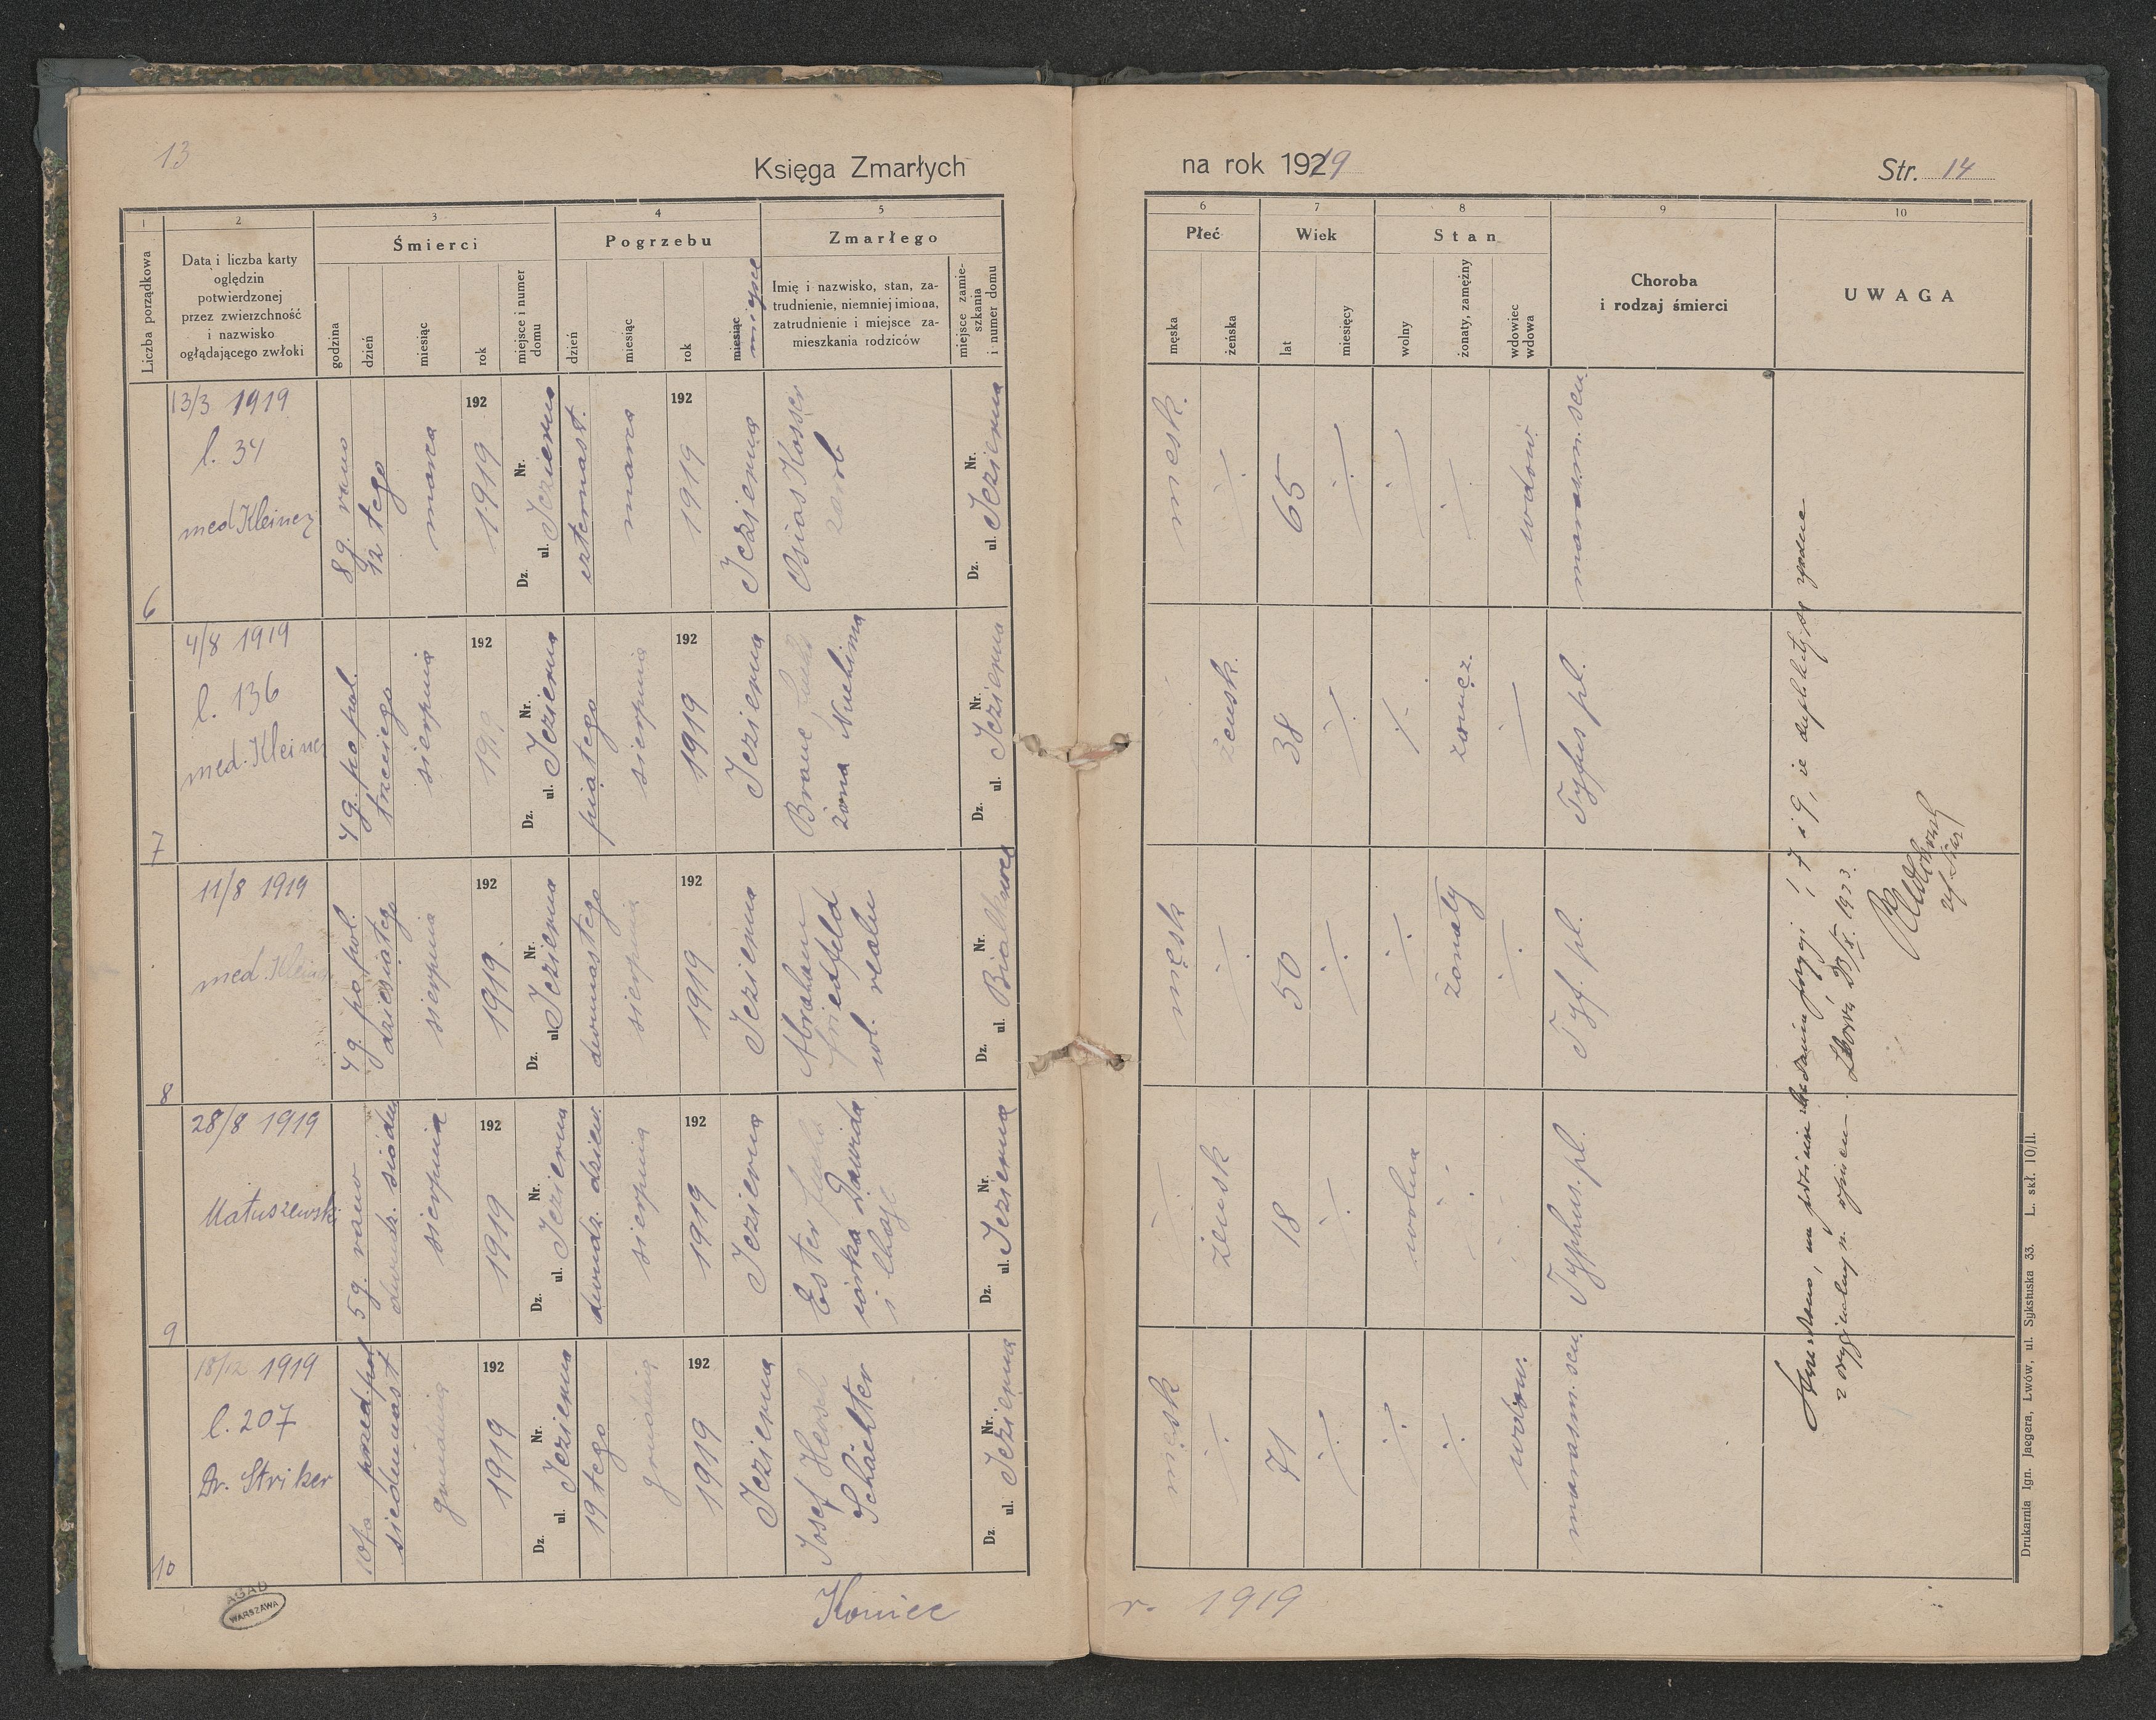 13
Księga Zmarłych
na rok 1919
Str. 14
1
2
3
4
5
6
7
8
9
10
Liczba porządkowa
Data i liczba karty
oględzin
potwierdzonej
przez zwierzchność
i nazwisko
oglądającego zwłoki
Śmierci
godzina
dzień
miesiąc
rok
miejsce i numer
domu
Pogrzebu
dzień
miesiąc
rok
miesiąc
miejsce
Zmarłego
Imię i nazwisko, stan, za-
trudnienie, niemniej imiona,
zatrudnienie i miejsce za-
mieszkania rodziców
miejsce zamie-
szkania
i numer domu
Płeć
męska
żeńska
Wiek
lat
miesięcy
Stan
wolny
żonaty, zamężny
wdowiec
wdowa
Choroba
i rodzaj śmierci
UWAGA
6
13/3 1919
l. 34
med Kleiner
8 g. rano
12 tego
marca
192
1919
Dz. ul. Nr.
Jezierna
czternast.
marca
192
1919
Jezierna
Osias Kosser
zarob
Dz. ul. Nr.
Jezierna
męsk.
65
wdow.
marasm. sen.
7
4/8 1919
l. 136
med. Kleiner
4 g. po poł.
trzeciego
sierpnia
192
191
Dz. ul. Nr.
Jezierna
piątego
sierpnia
192
1919
Jezierna
Brane
żona Nuchima
Dz. ul. Nr.
Jezierna
żeńsk.
38
zamęż.
Tyfus pl.
8
11/8 1919
med. Kleiner
4 g. po poł.
dziesiątego
sierpnia
192
1919.
Dz. ul. Nr.
Jezierna
dwunastego
sierpnia
192
1919
Jezierna
Abraham
Friedfeld
wł. realn
Dz. ul. Nr.
męsk
50
żonaty
Tyf. pl.
9
28/8 1919
Matuszewski
5 g. rano
dwudz. siódm
sierpnia
192
1919
Dz. ul. Nr.
Jezierna
dwudz. dziew.
sierpnia
192
1919
Jezierna
Ester
córka Dawida
i Chaje
Dz. ul. Nr.
Jezierna
żeńsk
18
wolna
Typhus. pl.
10
18/12 1919
l. 207
Dr. Striker
10ta przed poł
siedemnast
grudnia
192
1919
Dz. ul. Nr.
Jezierna
19 tego
grudnia
192
1919
Jezierna
Josef Hersch
Schächter
Dz. ul. Nr.
Jezierna
męsk
71
wdow.
marasm. sen.
7 i 9, że duplikaty są zgodne
z oryginalnym
Lwów
1933.
Koniec
r. 1919
AGAD
WARSZAWA
Drukarnia Ign. Jaegera, Lwów, ul. Sykstuska 33. L. skł. 10/II.